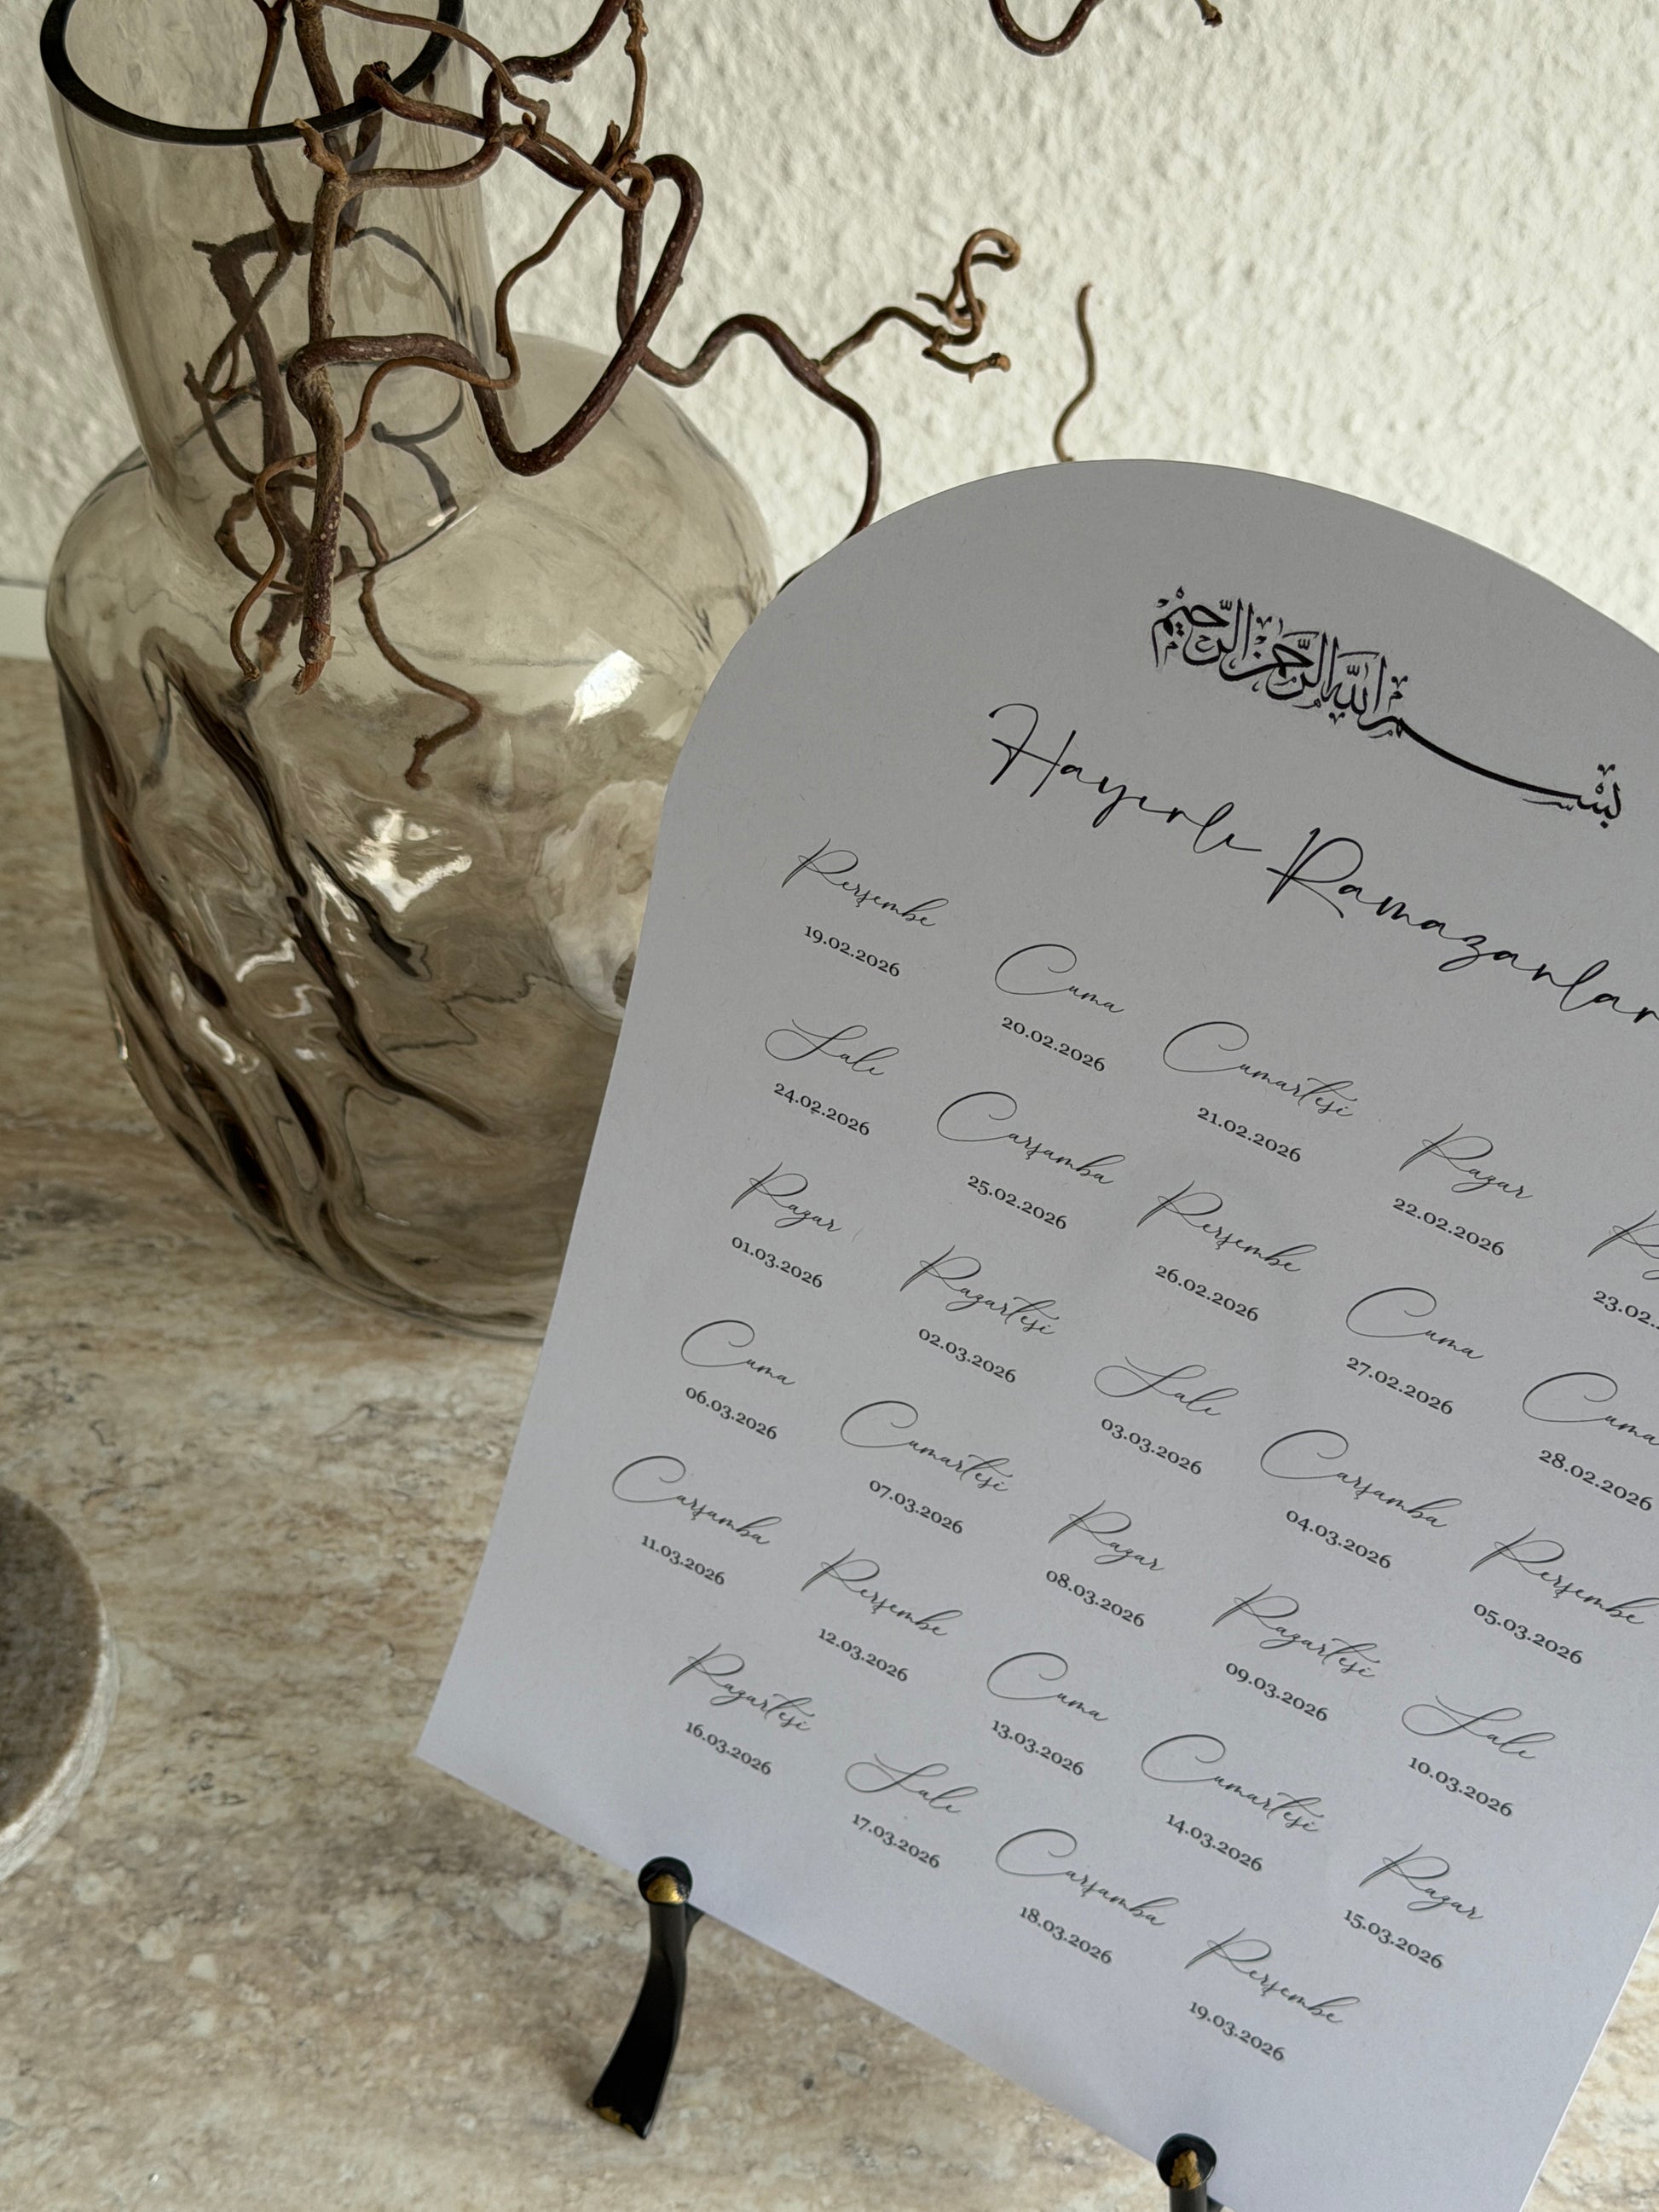 بسم الله الرحمن الرحيم
Hayırlı Ramazanlar
Perşembe Cuma Cumartesi Pazar
19.02.2026 20.02.2026 21.02.2026 22.02.2026 23.02.
Salı Çarşamba Perşembe Cuma Cuma
24.02.2026 25.02.2026 26.02.2026 27.02.2026 28.02.2026
Pazar Pazartesi Salı Çarşamba Perşembe
01.03.2026 02.03.2026 03.03.2026 04.03.2026 05.03.2026
Cuma Cumartesi Pazar Pazartesi Salı
06.03.2026 07.03.2026 08.03.2026 09.03.2026 10.03.2026
Çarşamba Perşembe Cuma Cumartesi Pazar
11.03.2026 12.03.2026 13.03.2026 14.03.2026 15.03.2026
Pazartesi Salı Çarşamba Perşembe
16.03.2026 17.03.2026 18.03.2026 19.03.2026